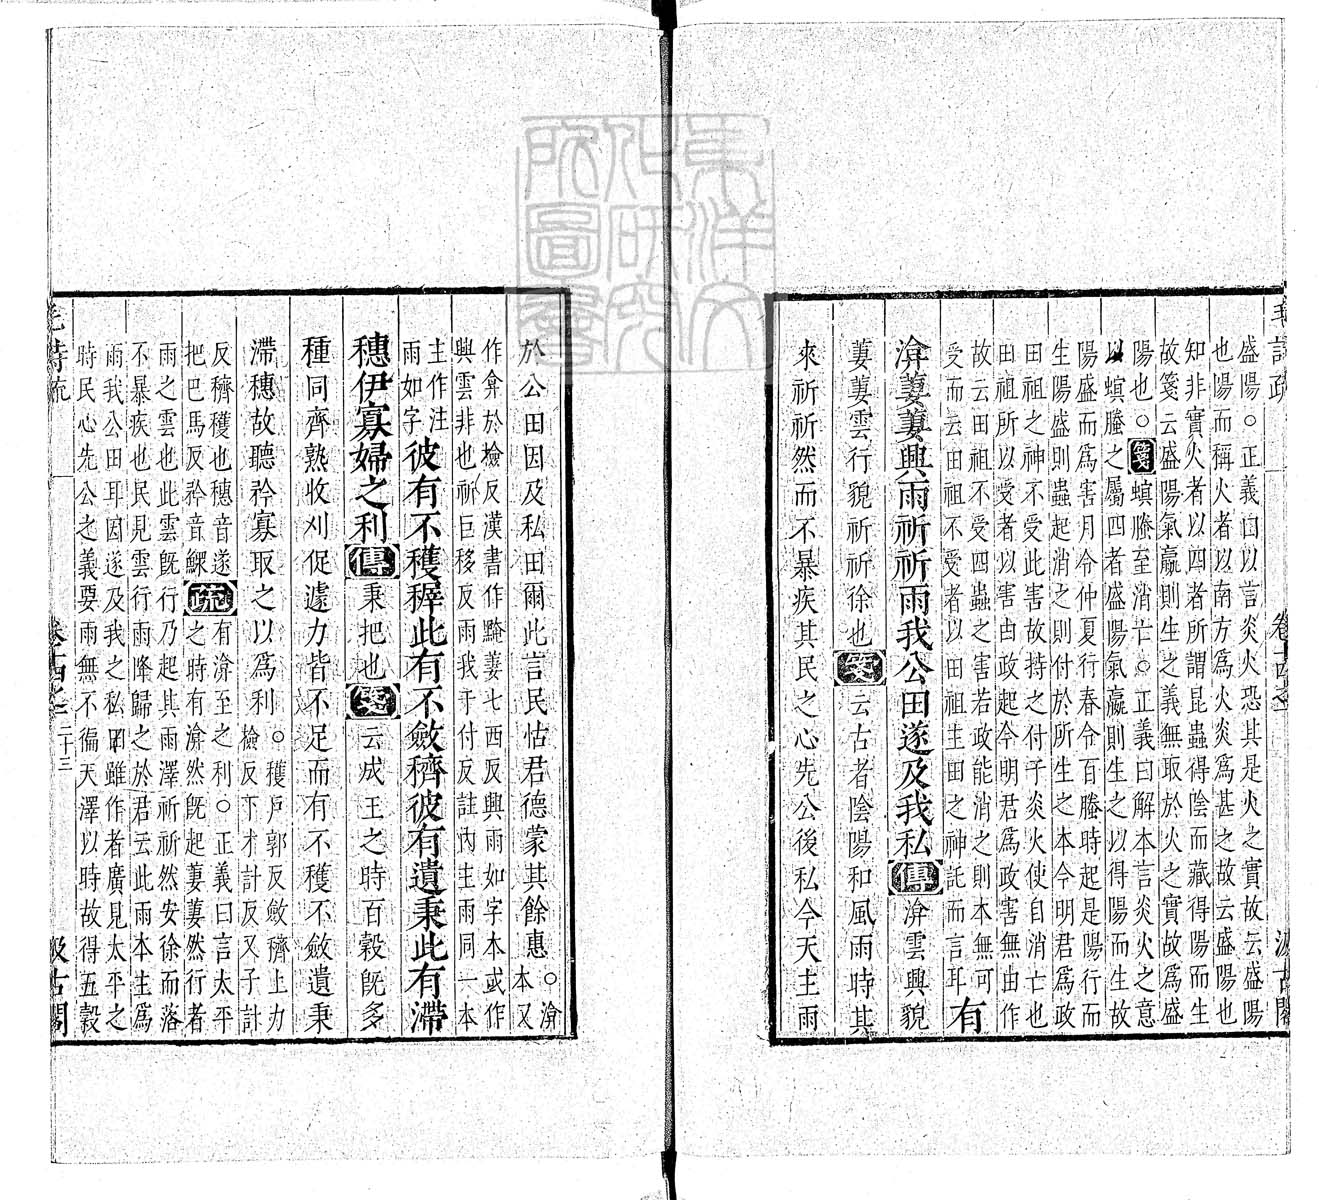 盛陽○正義曰以言炎火恐其是火之實故云盛陽
也陽而稱火者以南方爲火炎爲甚之故云盛陽也
知非實火者以四者所謂昆蟲得陰而藏得陽而生
故箋云盛陽氣贏則生之義無取於火之實故爲盛
陽也○箋螟螣至消亡○正義曰解本言炎火之意
以螟螣之屬四者盛陽氣贏則生之以得陽而生故
陽盛而爲害月令仲夏行春令百螣時起是陽行而
生陽盛則蟲起消之則付於所生之本今明君爲政
田祖之神不受此害故持之付予炎火使自消亡也
田祖所以受者以害由政起今明君爲政害無由作
故云田祖不受四蟲之害若政能消之則本無可
受而云田祖不受者以田祖主田之神託而言耳有
渰萋萋興雨祈祈雨我公田遂及我私傳渰雲興貌
萋萋雲行貌祈祈徐也箋云古者陰陽和風雨時其
來祈祈然而不暴疾其民之心先公後私今天主雨
於公田因及私田爾此言民怙君德蒙其餘惠○渰
本又
作弇於檢反漢書作黤萋七西反興雨如字本或作
興雲非也祈巨移反雨我于付反註內主雨同一本
主作注
雨如字彼有不穫穉此有不斂穧彼有遺秉此有滯
穗伊寡婦之利傳秉把也箋云成王之時百穀既多
種同齊熟收刈促遽力皆不足而有不穫不斂遺秉
滯穗故聽矜寡取之以爲利○穫戶郭反斂穧上力
檢反下才計反又子計
反穧穫也穗音遂
把巴馬反矜音鰥疏有渰至之利○正義曰言太平
之時有渰然既起萋萋然行者
雨之雲也此雲既行乃起其雨澤祈祈然安徐而落
不暴疾也民見雲行雨降歸之於君云此雨本主爲
雨我公田耳因遂及我之私田雖作者廣見太平之
時民心先公之義要雨無不徧天澤以時故得五穀
毛詩疏 卷十四之一 二十三 汲古閣